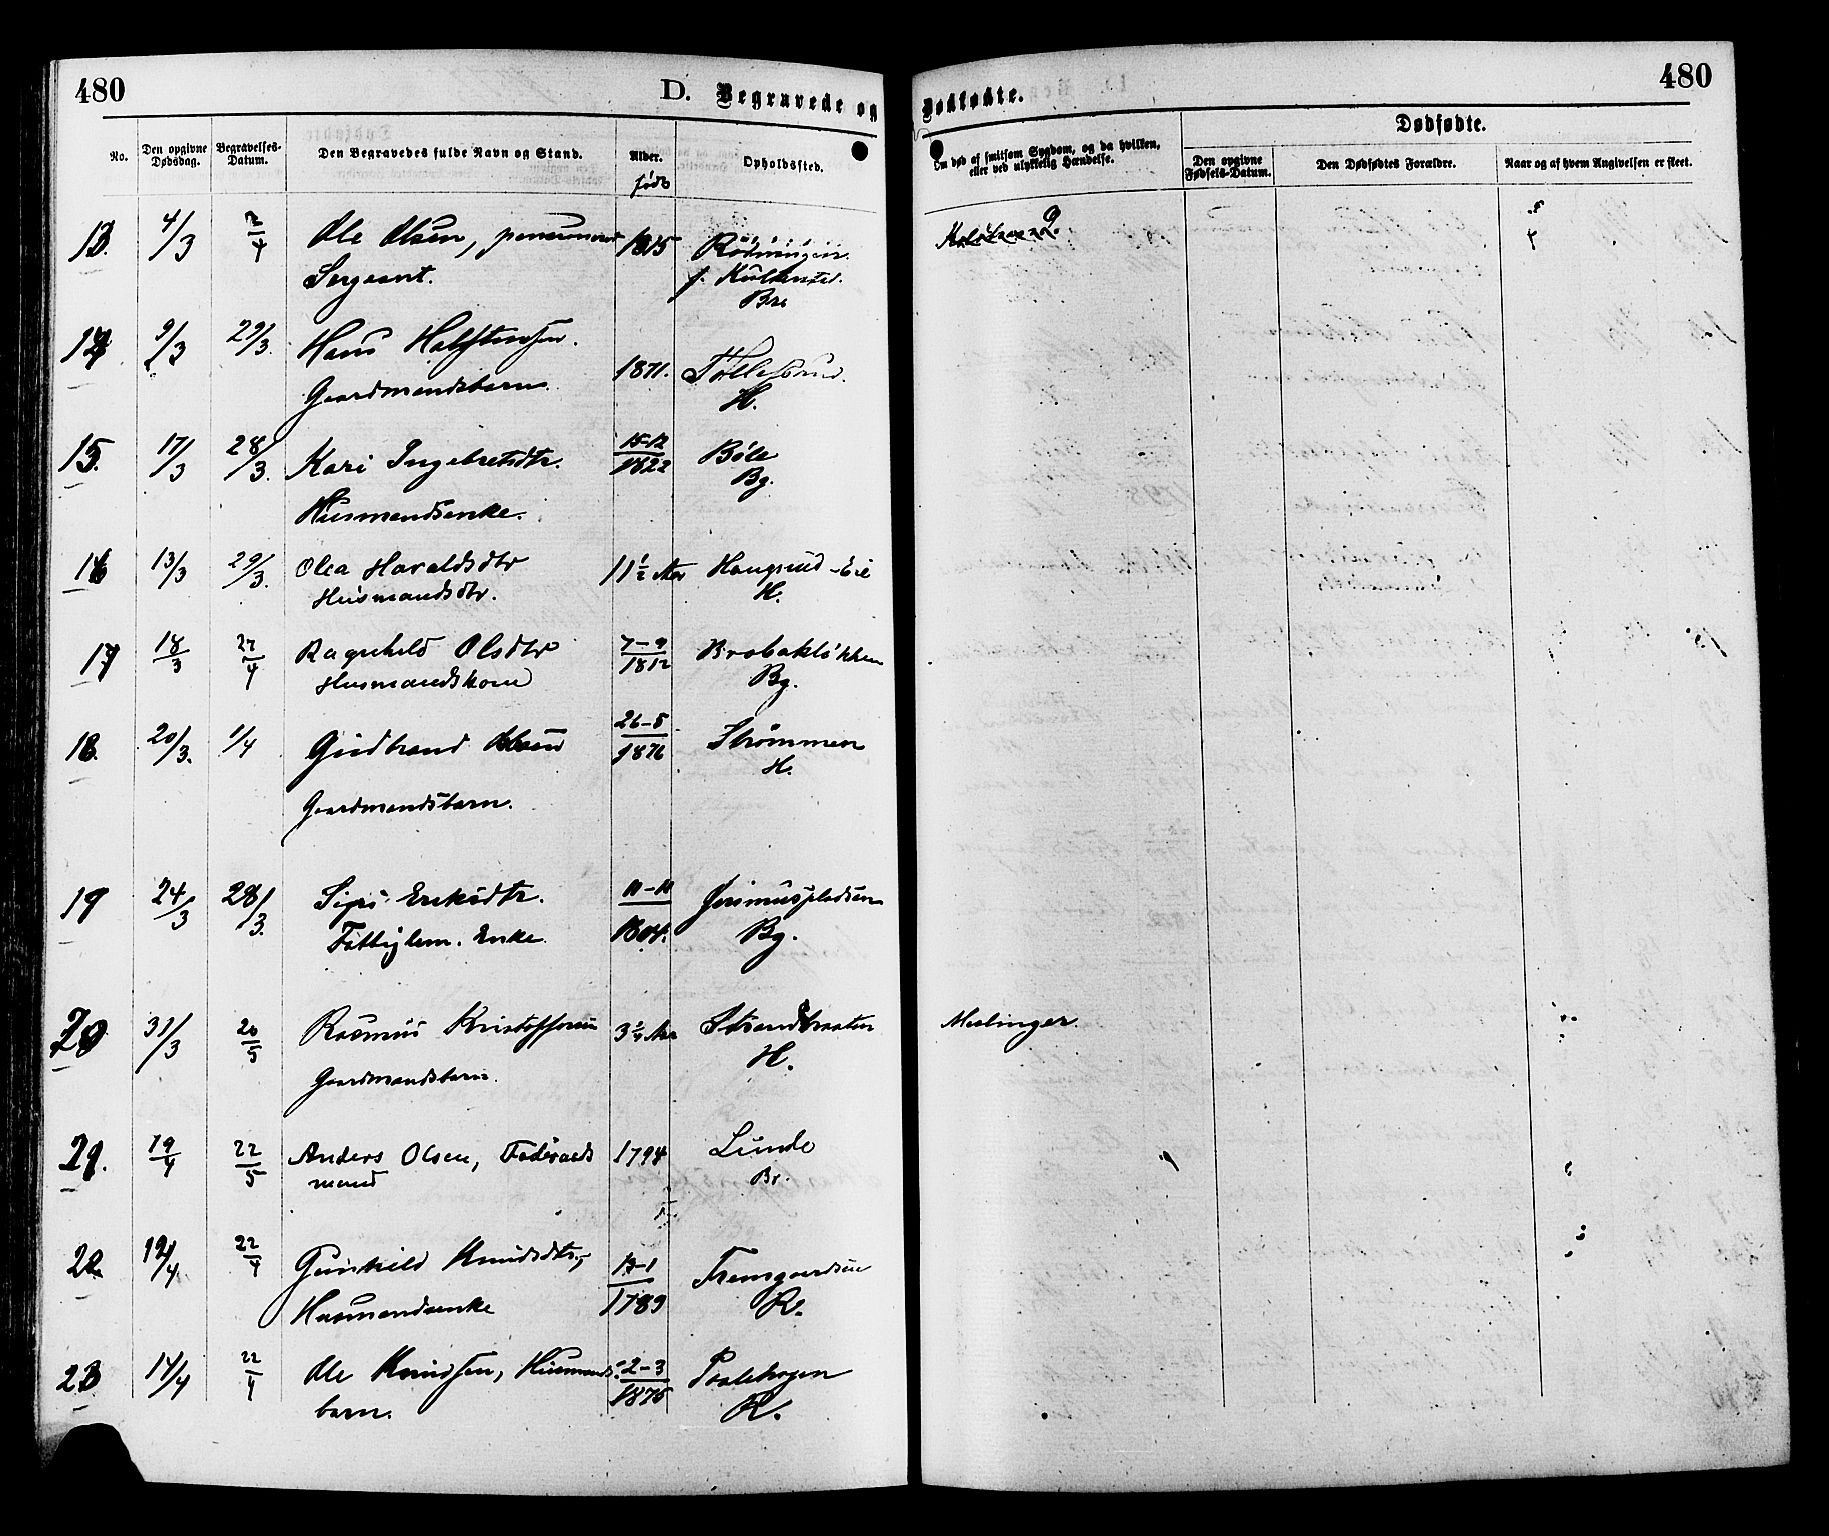 480
D. Begravede og
Dødfødte.
480
No.
Den opgivne Dødsdag.
Begravelses-Datum.
Den Begravedes fulde Navn og Stand.
Alder.
født
Opholdssted.
Om død af smitsom Sygdom, og da hvilken, eller ved ulykkelig Hændelse.
Dødfødte.
Den opgivne Fødsels-Datum.
Den Dødfødtes Forældre.
Naar og af hvem Angivelsen er skeet.
13. 4/3 Ole Olsen, pensioneret 1815
Sergeant.
Bre
14 9/3 29/3. Hans
Gaardmandsbarn. 1871.
H.
15. 17/3 28/3. Kari Ingebretsdtr. 15-12 1822 Bøle
Bg.
Husmandsenke.
16 13/3 29/3. Olea Haraldsdtr 11 1/2 Aar Haugsrud-Eie
Husmandsdtr. H.
17 18/3 27/4 Ragnhild Olsdtr 7-9 1812 Brobakløkken
Husmandskone Bg.
18. 20/3. 1/4 Gudbrand 26-5 1876 Strømmen
H.
Gaardmandsbarn.
19 24/3 28/3. Sigri Eriksdtr. 11-11 1804.
Fattiglem. Enke. Bg.
20 31/3 20/5 Rasmus Kristoffersen 3 1/4 Aar Strandbraaten Meslinger.
Gaardmandsbarn. H.
21. 19/4 22/5 Anders Olsen, Føderaads 1794 Lunde
mand Br.
22. 12/4 22/4 Gunhild Knudsdtr., 13-1 1789 Fremgaardseie
Husmandsenke R.
23 14/4 22/4 Ole Knudsen, Husmands 2-3 1875 Paalehagen
barn. R.